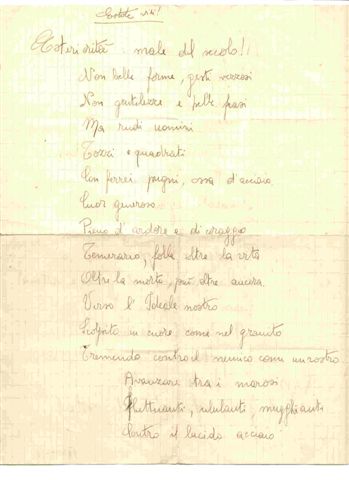 Estote viri!
Esteriorità: male del secolo!!
Non belle forme, gesti vezzosi
Non gentilezze e belle frasi
Ma rudi uomini
Tozzi e quadrati
Con ferrei pugni, ossa d'acciaio
Cuor generoso
Pieno d'ardore e di coraggio
Temerario, folle oltre la vita
Oltre la morte, più oltre ancora
Verso l'Ideale nostro
Scolpito in cuore come nel granito
Tremendo contro il nemico come un rostro
Avanzare tra i marosi
Fluttuanti, ululanti, mugghianti
Contro il lucido acciaio